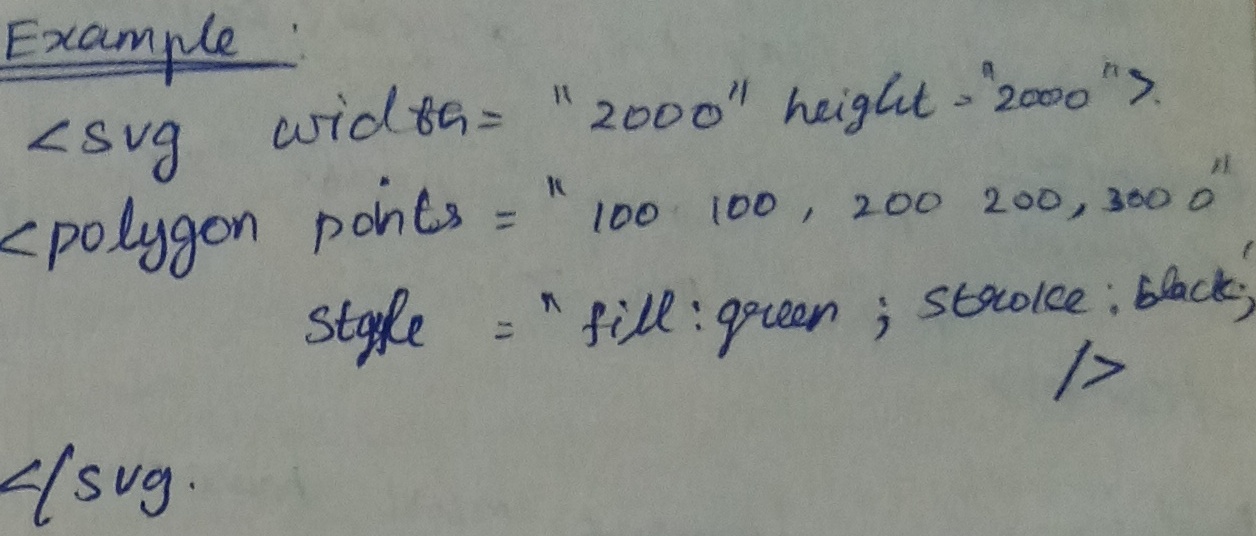 Example :
<svg width= "2000" height = "2000">.
<polygon points = "100 100, 200 200, 300 0"
style = "fill:green ; stroke : black;'
/>
</svg.